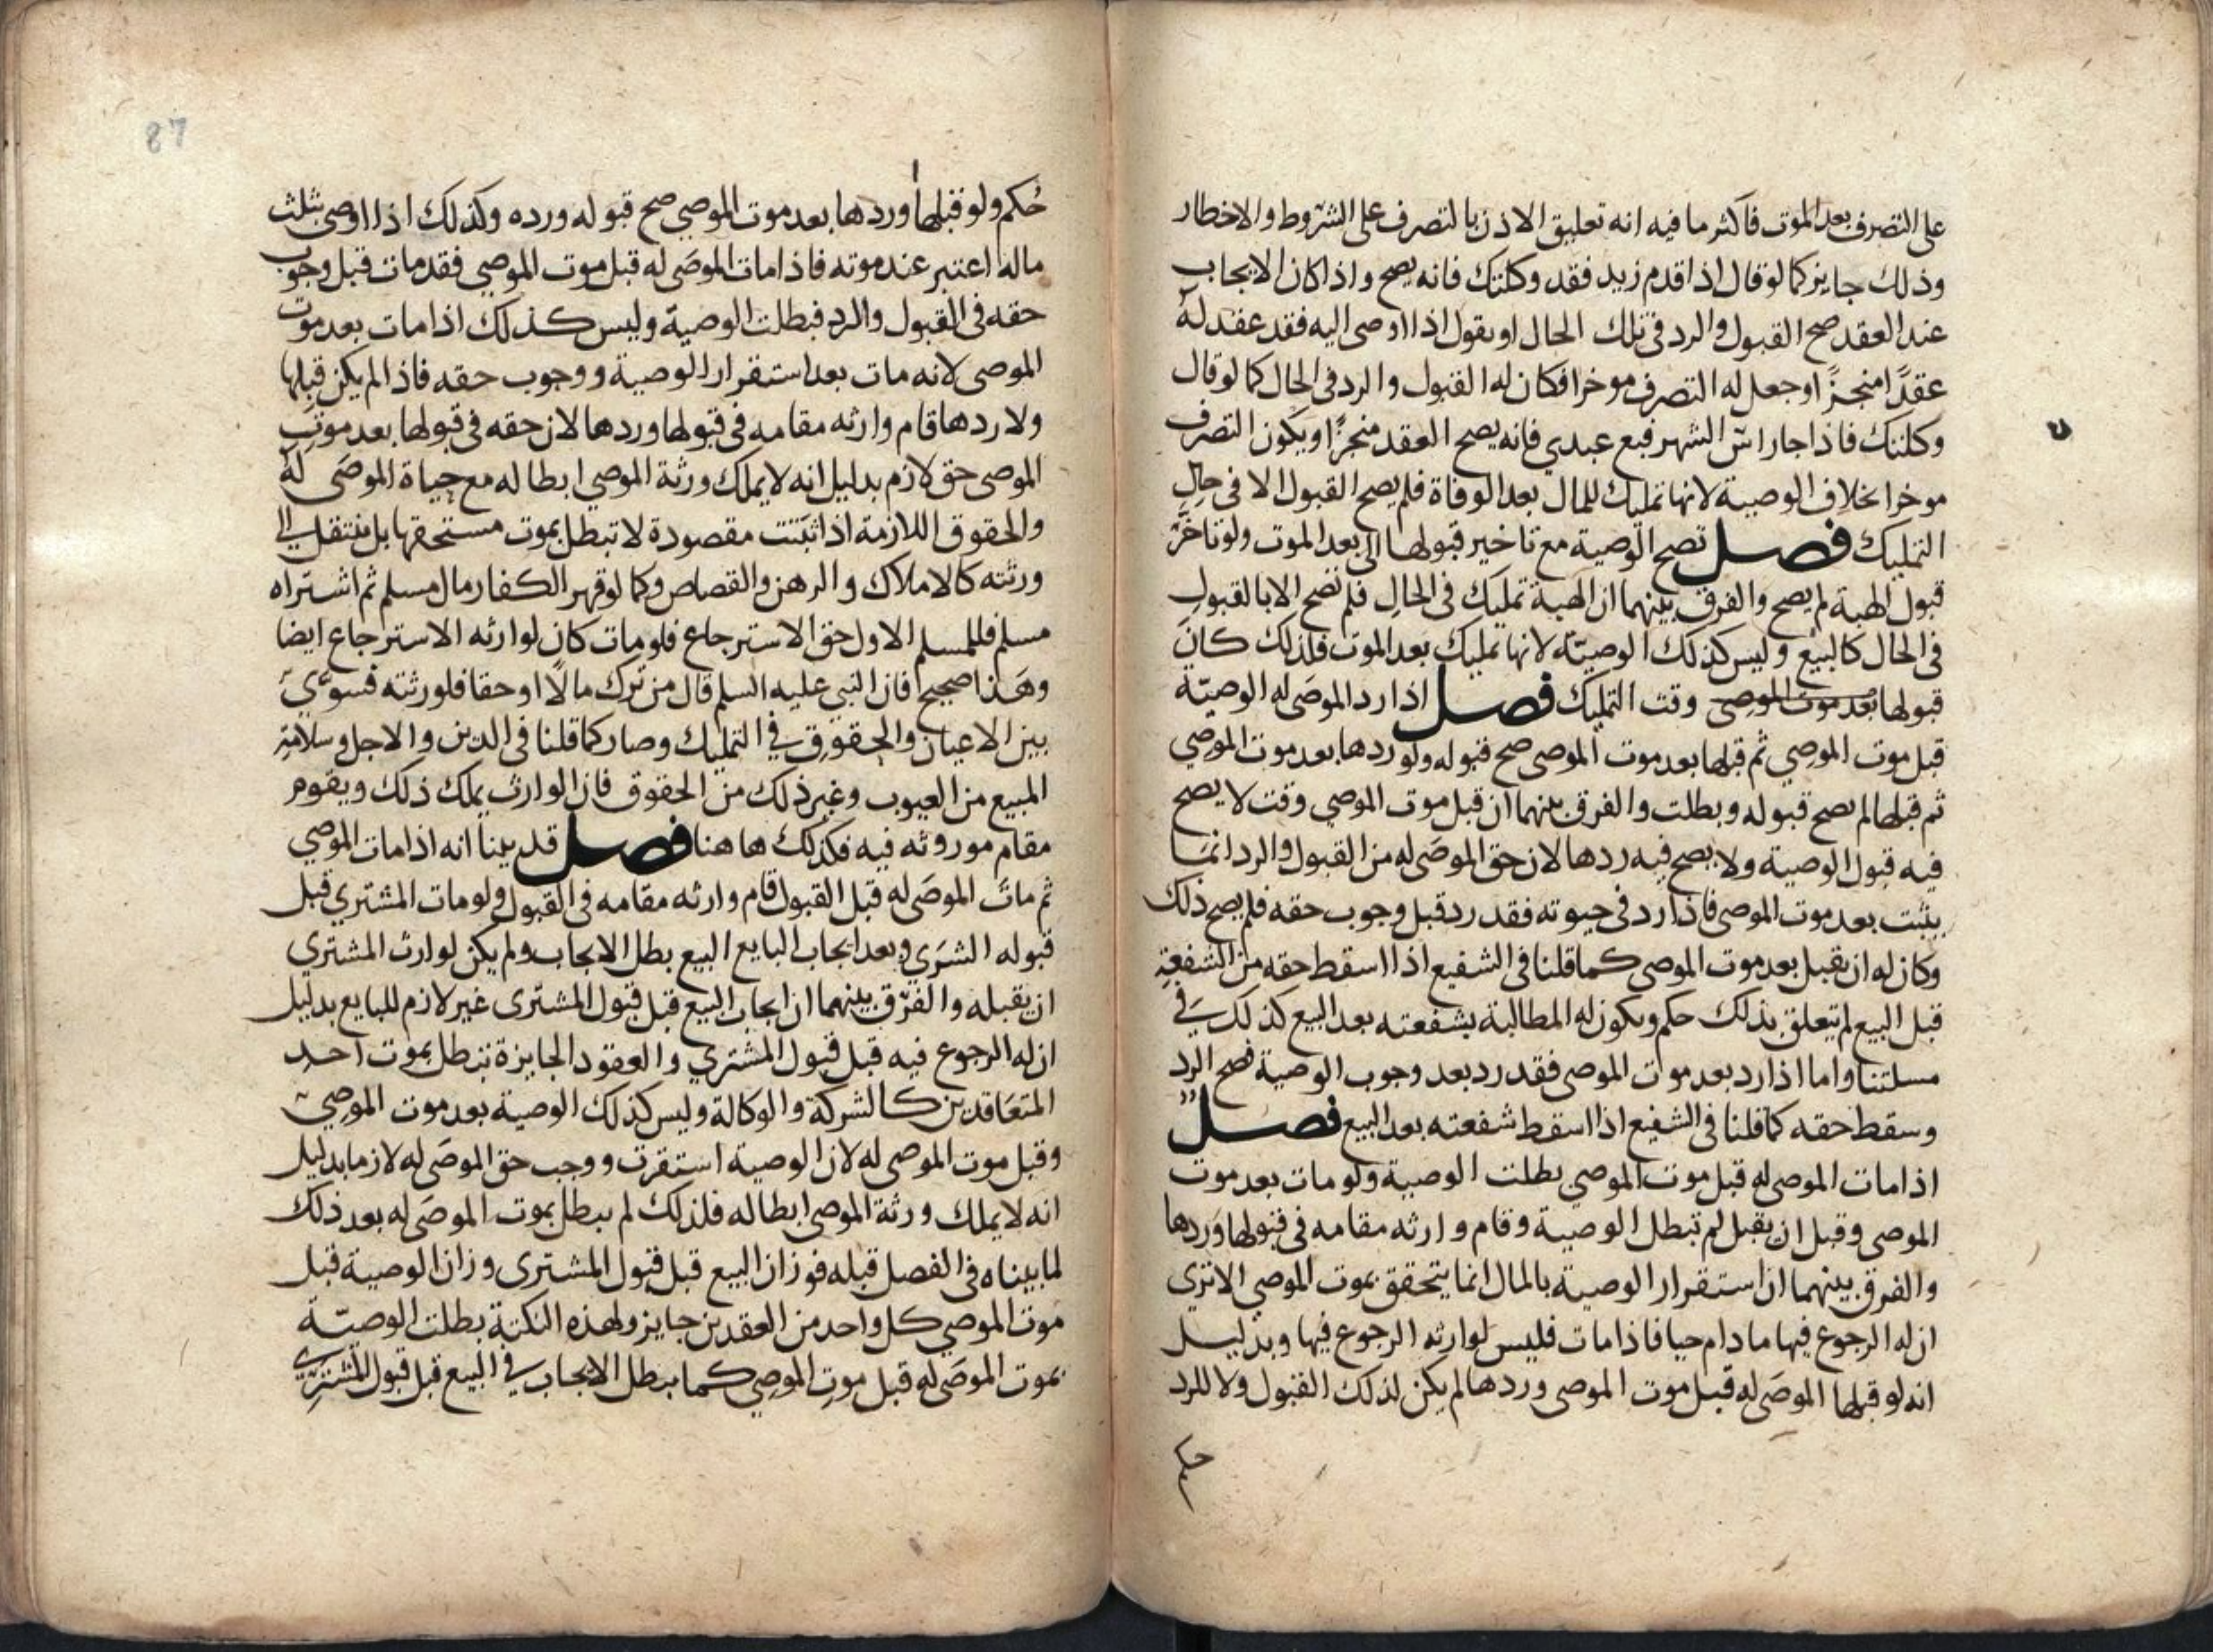 على التصرف بعد الموت فاكثر ما فيه انه تعليق الاذن بالتصرف على الشروط والاخطار
وذلك جايز كما لو قال اذا قدم زيد فقد وكلتك فانه يصح واذا كان الايجاب
عند العقد صح القبول والرد في تلك الحال او يقول اذا اوصى اليه فقد عقد له
عقدًا منجزً اوجعل له التصرف موخرا فكان له القبول والرد في الحال كما لو قال
وكلتك فاذا جا راس الشهر فبع عبدي فانه يصح العقد منجزًا ويكون التصرف
موخرا بخلاف الوصية لانها تمليك للمال بعد الوفاة فلم يصح القبول الا في حال
التمليك فصل تصح الوصية مع تاخير قبولها الى بعد الموت ولو تاخر
قبول الهبة لم يصح والفرق بينهما ان الهبة تمليك في الحال فلم تصح الا بالقبول
في الحال كالبيع وليس كذلك الوصيّة لانها تمليك بعد الموت فلذلك كان
قبولها بعد موت الموصى وقت التمليك فصل اذا رد الموصَى له الوصيّة
قبل موت الموصي ثم قبلها بعد موت الموصى صح قبوله ولو ردها بعد موت الموصي
ثم قبلها لم يصح قبوله وبطلت والفرق بينهما ان قبل موت الموصي وقت لا يصح
فيه قبول الوصية ولا يصح فيه ردها لان حق الموصَى له من القبول والرد انما
يثبت بعد موت الموصى فاذا رد في حيوته فقد رد قبل وجوب حقه فلم يصح ذلك
وكان له ان يقبل بعد موت الموصى كما قلنا في الشفيع اذا اسقط حقه من الشفعة
قبل البيع لم يتعلق بذلك حكم ويكون له المطالبة بشفعته بعد البيع كذلك في
مسلتنا واما اذا رد بعد موت الموصى فقد رد بعد وجوب الوصية فصح الرد
وسقط حقه كما قلنا في الشفيع اذا اسقط شفعته بعد البيع فصل
اذا مات الموصى له قبل موت الموصي بطلت الوصية ولو مات بعد موت
الموصى وقبل ان يقبل لم تبطل الوصية وقام وارثه مقامه في قبولها وردها
والفرق بينهما ان استقرار الوصية بالمال انما يتحقق بموت الموصي الا ترى
ان له الرجوع فيها ما دام حيا فاذا مات فليس لوارثه الرجوع فيها وبدليل
انه لو قبلها الموصَى له قبل موت الموصى وردها لم يكن لذلك القبول ولا للرد
حكم ولو قبلها او ردها بعد موت الموصي صح قبوله ورده وكذلك اذا اوصى بثلث
ماله اعتبر عند موته فاذا مات الموصَى له قبل موت الموصي فقد مات قبل وجوب
حقه في القبول والرد فبطلت الوصية وليس كذلك اذا مات بعد موت
الموصى لانه مات بعد استقرار الوصية ووجوب حقه فاذا لم يكن قبلها
ولا ردها قام وارثه مقامه في قبولها وردها لان حقه في قبولها بعد موت
الموصى حق لازم بدليل انه لا يملك ورثة الموصي ابطاله مع حياة الموصَى له
والحقوق اللازمة اذا ثبتت مقصودة لا تبطل بموت مستحقها بل تنتقل الى
ورثته كالاملاك والرهن والقصاص وكما لو قهر الكفار مال مسلم ثم اشتراه
مسلم فللمسلم الاول حق الاسترجاع فلو مات كان لوارثه الاسترجاع ايضا
وهذا صحيح فان النبي عليه السلم قال من ترك مالًا او حقا فلورثته فسوّى
بين الاعيان والحقوق في التمليك وصار كما قلنا في الدين والاجل وسلامة
المبيع من العيوب وغير ذلك من الحقوق فان الوارث يملك ذلك ويقوم
مقام موروثه فيه فكذلك ها هنا فصل قد بينا انه اذا مات الموصي
ثم مات الموصَى له قبل القبول قام وارثه مقامه في القبول ولو مات المشتري قبل
قبوله الشرى وبعد ايجاب البايع البيع بطل الايجاب ولم يكن لوارث المشتري
ان يقبله والفرق بينهما ان ايجاب البيع قبل قبول المشترى غير لازم للبايع بدليل
ان له الرجوع فيه قبل قبول المشتري والعقود الجايزة تبطل بموت احد
المتعاقدين كالشركة والوكالة وليس كذلك الوصية بعد موت الموصي
وقبل موت الموصى له لان الوصية استقرت ووجب حق الموصَى له لازما بدليل
انه لا يملك ورثة الموصى ابطاله فلذلك لم يبطل بموت الموصَى له بعد ذلك
لما بيناه في الفصل قبله فوزان البيع قبل قبول المشترى وزان الوصية قبل
موت الموصي كل واحد من العقدين جايز ولهذه النكتة بطلت الوصيّة
بموت الموصَى له قبل موت الموصي كما يبطل الايجاب في البيع قبل قبول المشتري
87